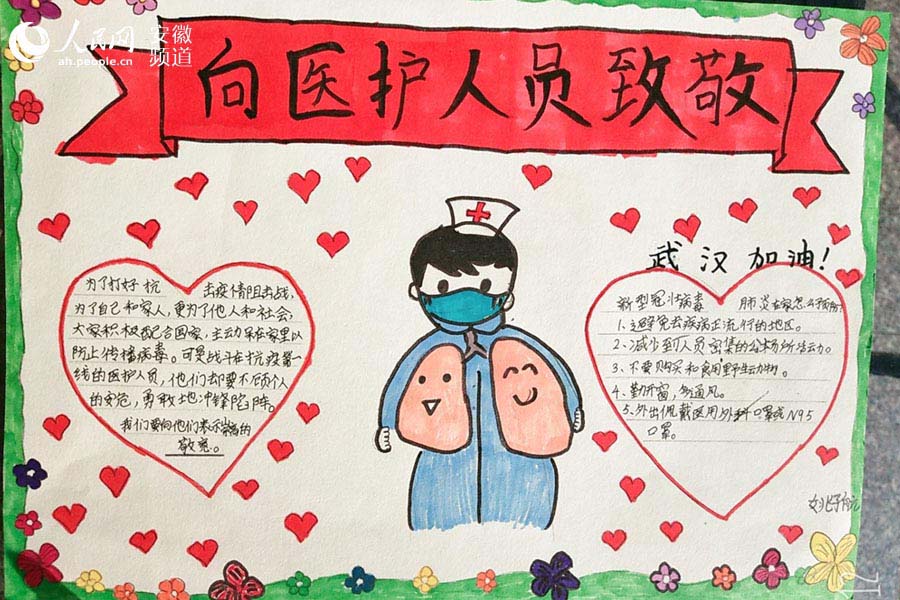 人民网
ah.people.cn
安徽
频道
向医护人员致敬
武汉加油!
为了打好抗击疫情阻击战,
为了自己和家人,更为了他人和社会,
大家积极配合国家,主动呆在家里以
防止传播病毒。可是战斗在抗疫第一
线的医护人员,他们却要不顾个人
的安危,勇敢地冲锋陷阵。
我们要向他们表示崇高的
敬意。
新型冠状病毒 肺炎在家怎么预防?
1、避免去疾病正流行的地区。
2、减少到人员密集的公共场所活动。
3、不要购买和食用野生动物。
4、勤开窗,多通风。
5、外出佩戴医用外科口罩或N95
口罩。